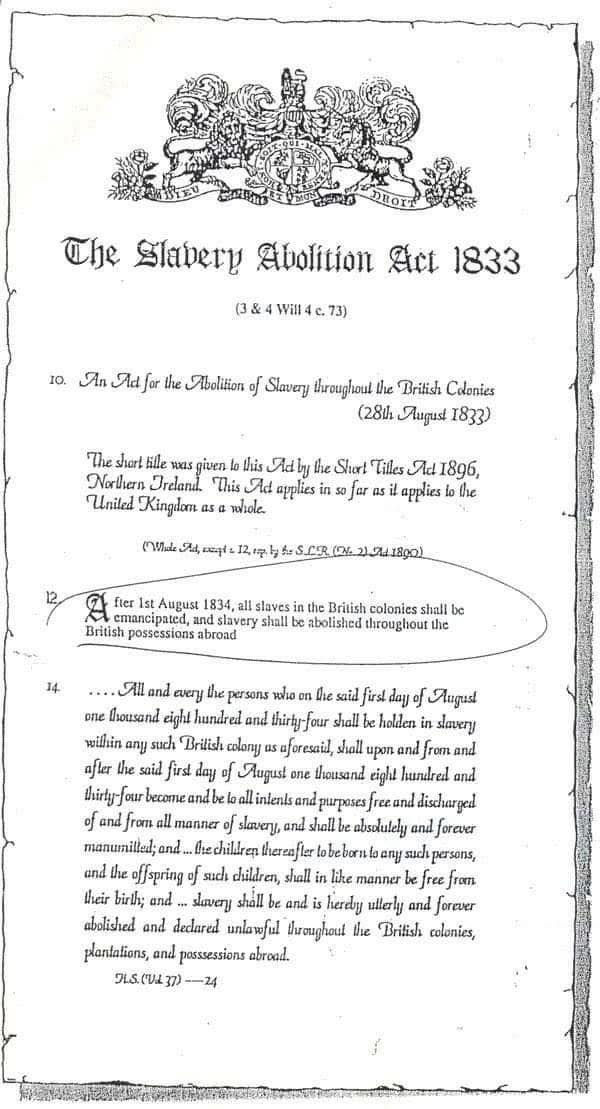 DIEU ET MON DROIT
The Slavery Abolition Act 1833
(3 & 4 Will 4 c. 73)
10. An Act for the Abolition of Slavery throughout the British Colonies
(28th August 1833)
The short title was given to this Act by the Short Titles Act 1896,
Northern Ireland. This Act applies in so far as it applies to the
United Kingdom as a whole.
(Whole Act, except s. 12, rep. by the S.L.R. (No. 2) Act 1890)
12. After 1st August 1834, all slaves in the British colonies shall be
emancipated, and slavery shall be abolished throughout the
British possessions abroad
14. ....All and every the persons who on the said first day of August
one thousand eight hundred and thirty-four shall be holden in slavery
within any such British colony as aforesaid, shall upon and from and
after the said first day of August one thousand eight hundred and
thirty-four become and be to all intents and purposes free and discharged
of and from all manner of slavery, and shall be absolutely and forever
manumitted; and ... the children thereafter to be born to any such persons,
and the offspring of such children, shall in like manner be free from
their birth; and ... slavery shall be and is hereby utterly and forever
abolished and declared unlawful throughout the British colonies,
plantations, and posssessions abroad.
H.S. (Vol. 37) —24